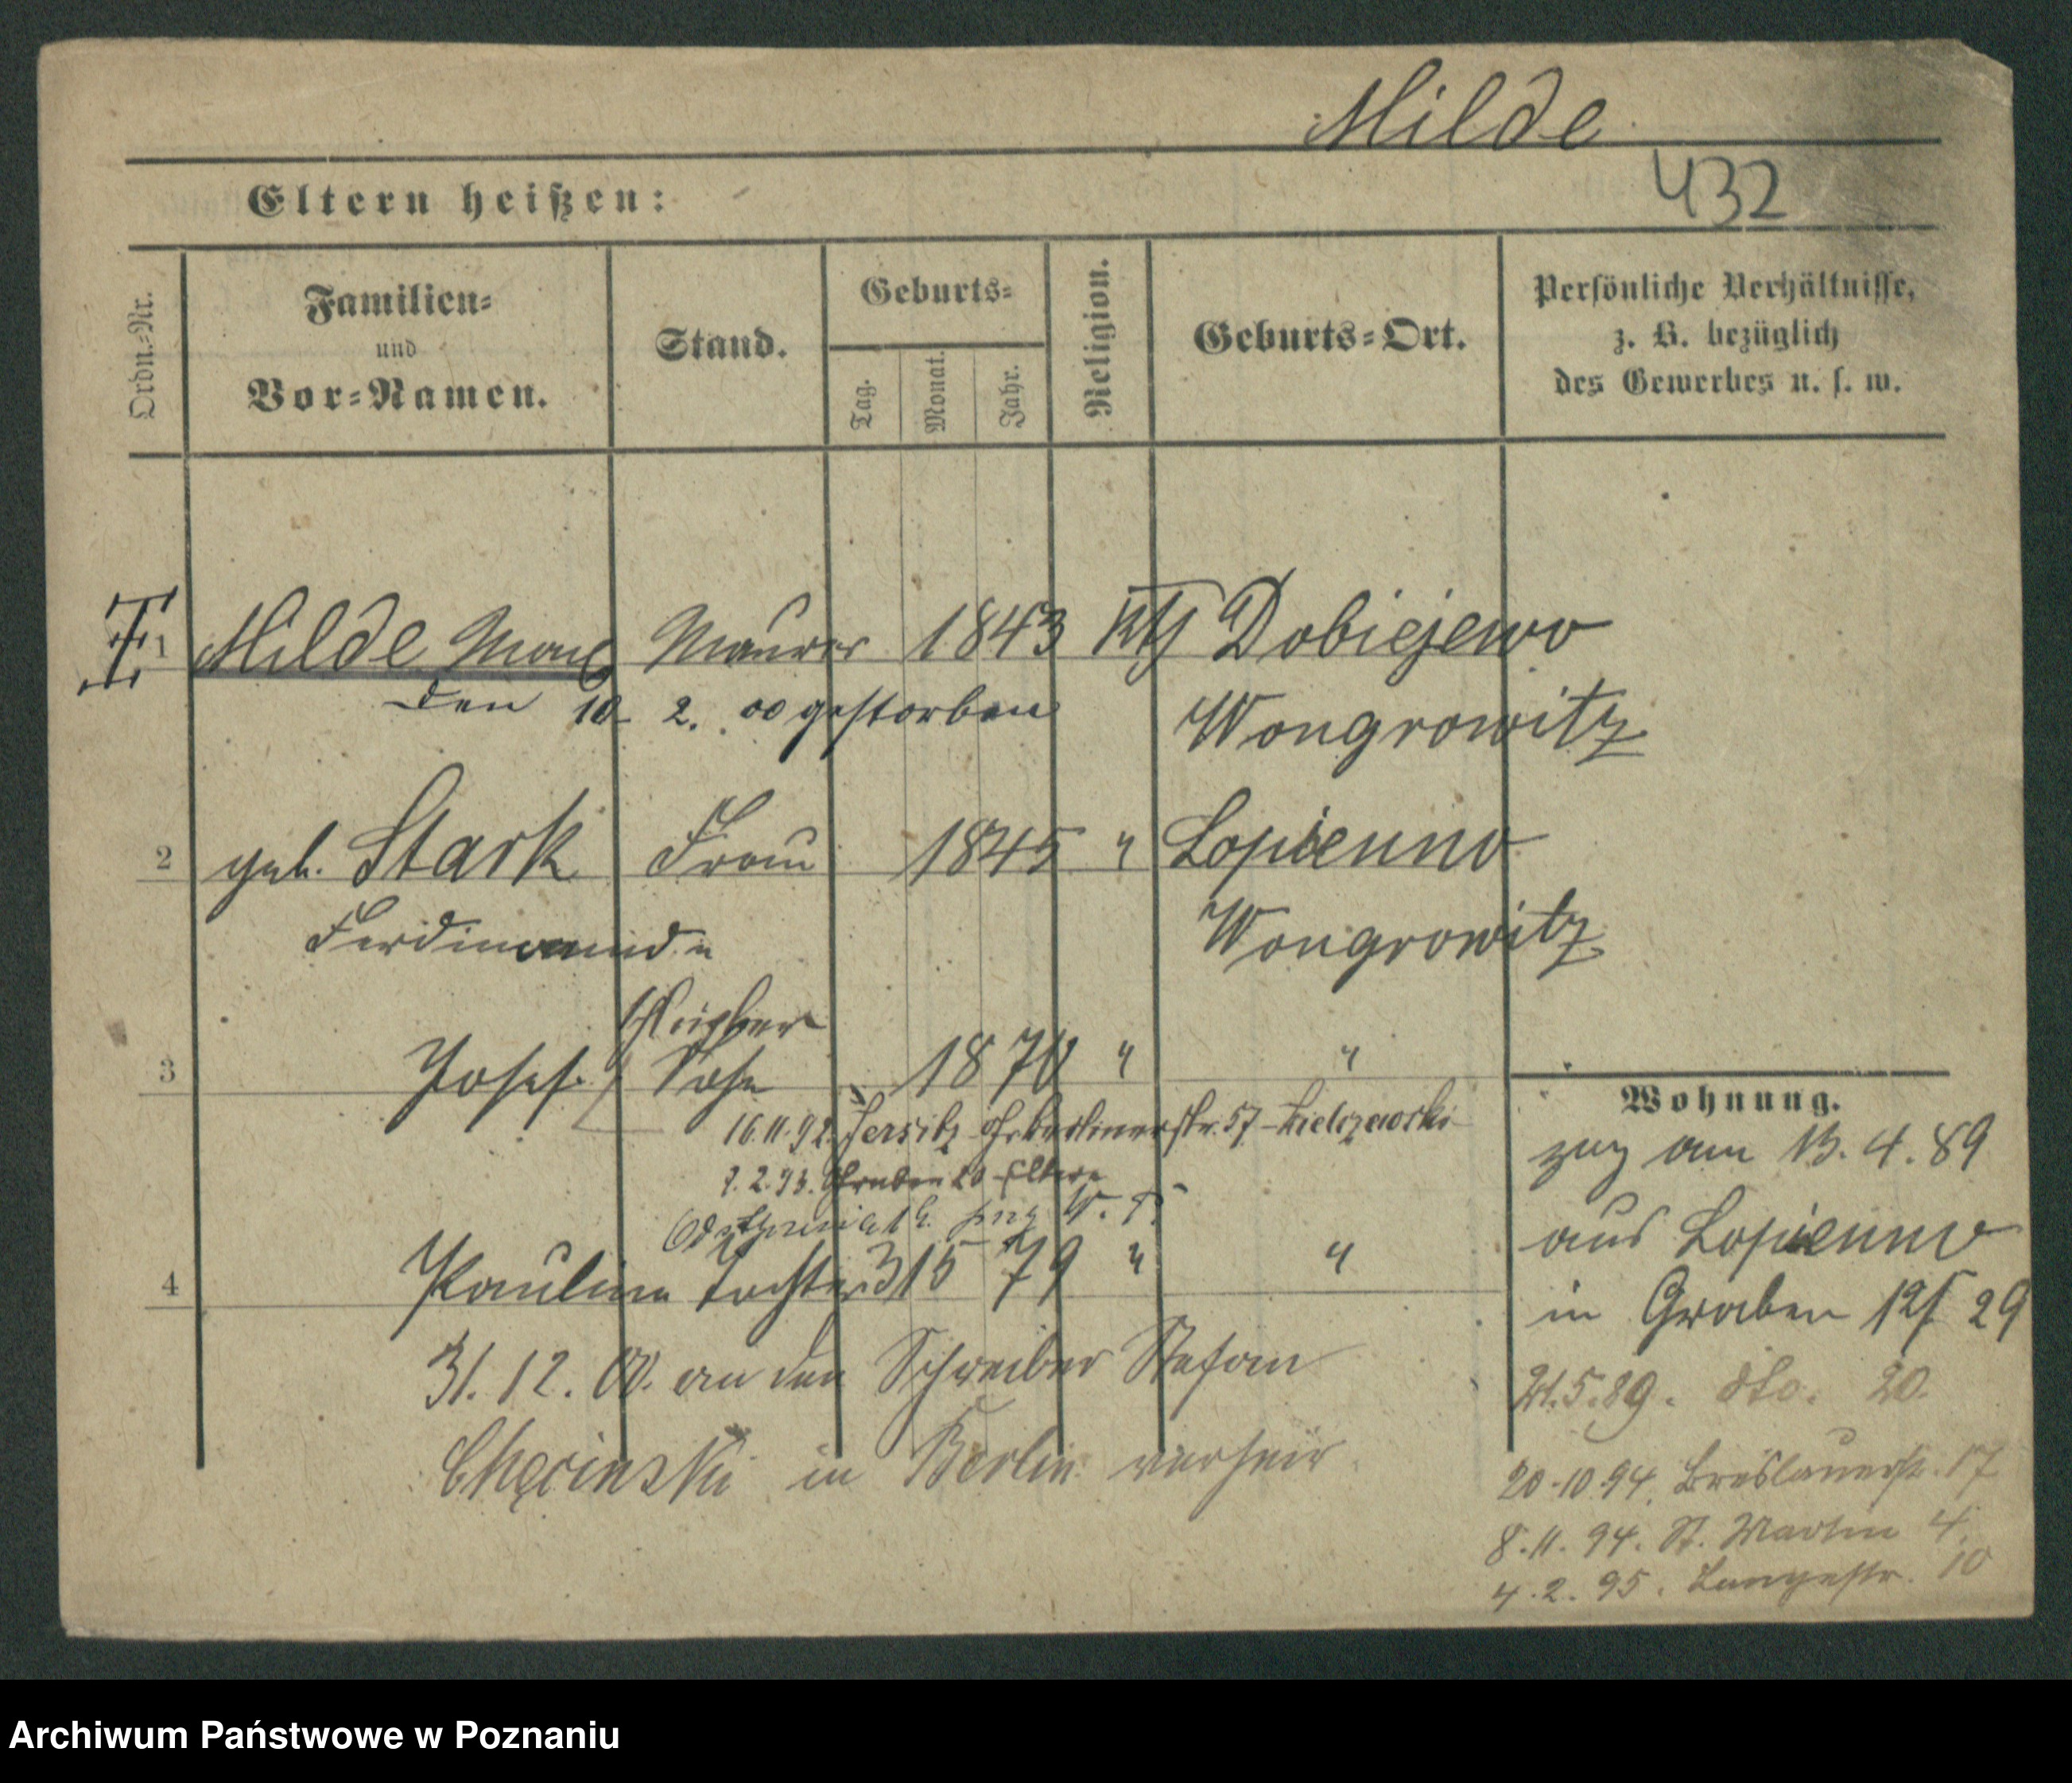 Milde
432
Eltern heißen:
Ordn.-Nr.
Familien-
und
Vor-Namen.
Stand.
Geburts-
Tag.
Monat.
Jahr.
Religion.
Geburts-Ort.
Persönliche Verhältnisse,
z. B. bezüglich
des Gewerbes u. s. w.
1 Milde Max Maurer 1843 kth Dobiejewo
den 10. 2. 00 gestorben Wongrowitz
2 geb. Stark Frau 1845 " Lopienno
Ferdinande Wongrowitz
3 Josef Sohn 1870 " "
16.11.92. Jersitz Gr. Berlinerstr. 57
7.2.93. Graben 20 Eltern
4 Pauline Tochter 3 15 79 " "
31. 12. 00. an den Schreiber Stefan
Chęcinski in Berlin verheir.
Wohnung.
zug am 13. 4. 89
aus Lopienno
in Graben 12/29
21.5.89. dto. 20.
20.10.94. Breslauerstr. 17
8.11.94. St. Martin 4.
4.2.95. Langestr. 10
Archiwum Państwowe w Poznaniu